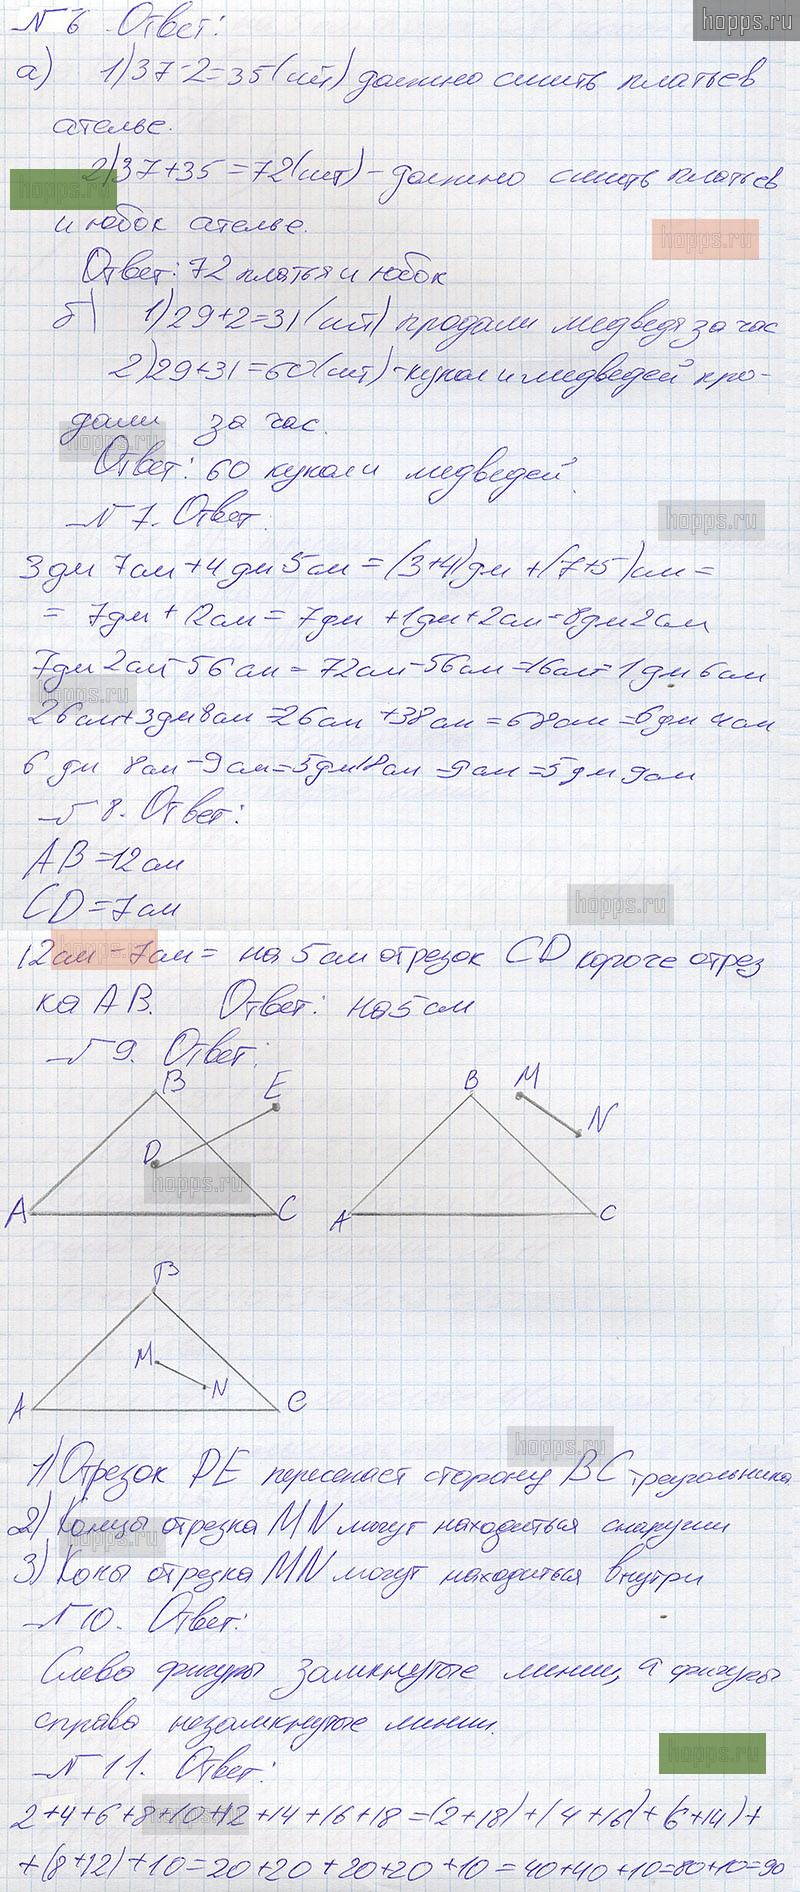 hopps.ru
№ 6 Ответ:
а) 1) 37-2=35 (шт) должно сшить платьев
ателье.
2) 37+35=72 (шт) - должно сшить платьев
hopps.ru
и юбок ателье.
hopps.ru
Ответ: 72 платья и юбок
б) 1) 29+2=31 (шт) продали медведя за час
2) 29+31=60 (шт) - кукол и медведей про-
дали за час.
hopps.ru
Ответ: 60 кукол и медведей
№ 7. Ответ
hopps.ru
3 дм 7 см + 4 дм 5 см = (3+4) дм + (7+5) см =
= 7 дм + 12 см = 7 дм + 1 дм + 2 см = 8 дм 2 см
7 дм 2 см - 56 см = 72 см - 56 см = 16 см = 1 дм 6 см
hopps.ru
26 см + 3 дм 8 см = 26 см + 38 см = 68 см = 6 дм 4 см
6 дм 8 см - 9 см = 5 дм 18 см - 9 см = 5 дм 9 см
№ 8. Ответ:
AB = 12 см
CD = 7 см
hopps.ru
12 см - 7 см = на 5 см отрезок CD короче отрез
hopps.ru
ка AB. Ответ: на 5 см
№ 9. Ответ:
B E B M
N
D
hopps.ru
A C A C
B
M
N
A C
hopps.ru
1) Отрезок DE пересекает сторону BC треугольника
2) Концы отрезка MN могут находиться снаружи
hopps.ru
3) Коны отрезка MN могут находиться внутри
№ 10. Ответ:
Слева фигуры замкнутые линии, а фигуры
справа незамкнутые линии.
hopps.ru
№ 11. Ответ:
2+4+6+8+10+12+14+16+18=(2+18)+(4+16)+(6+14)+
hopps.ru
+(8+12)+10=20+20+20+20+10=40+40+10=80+10=90